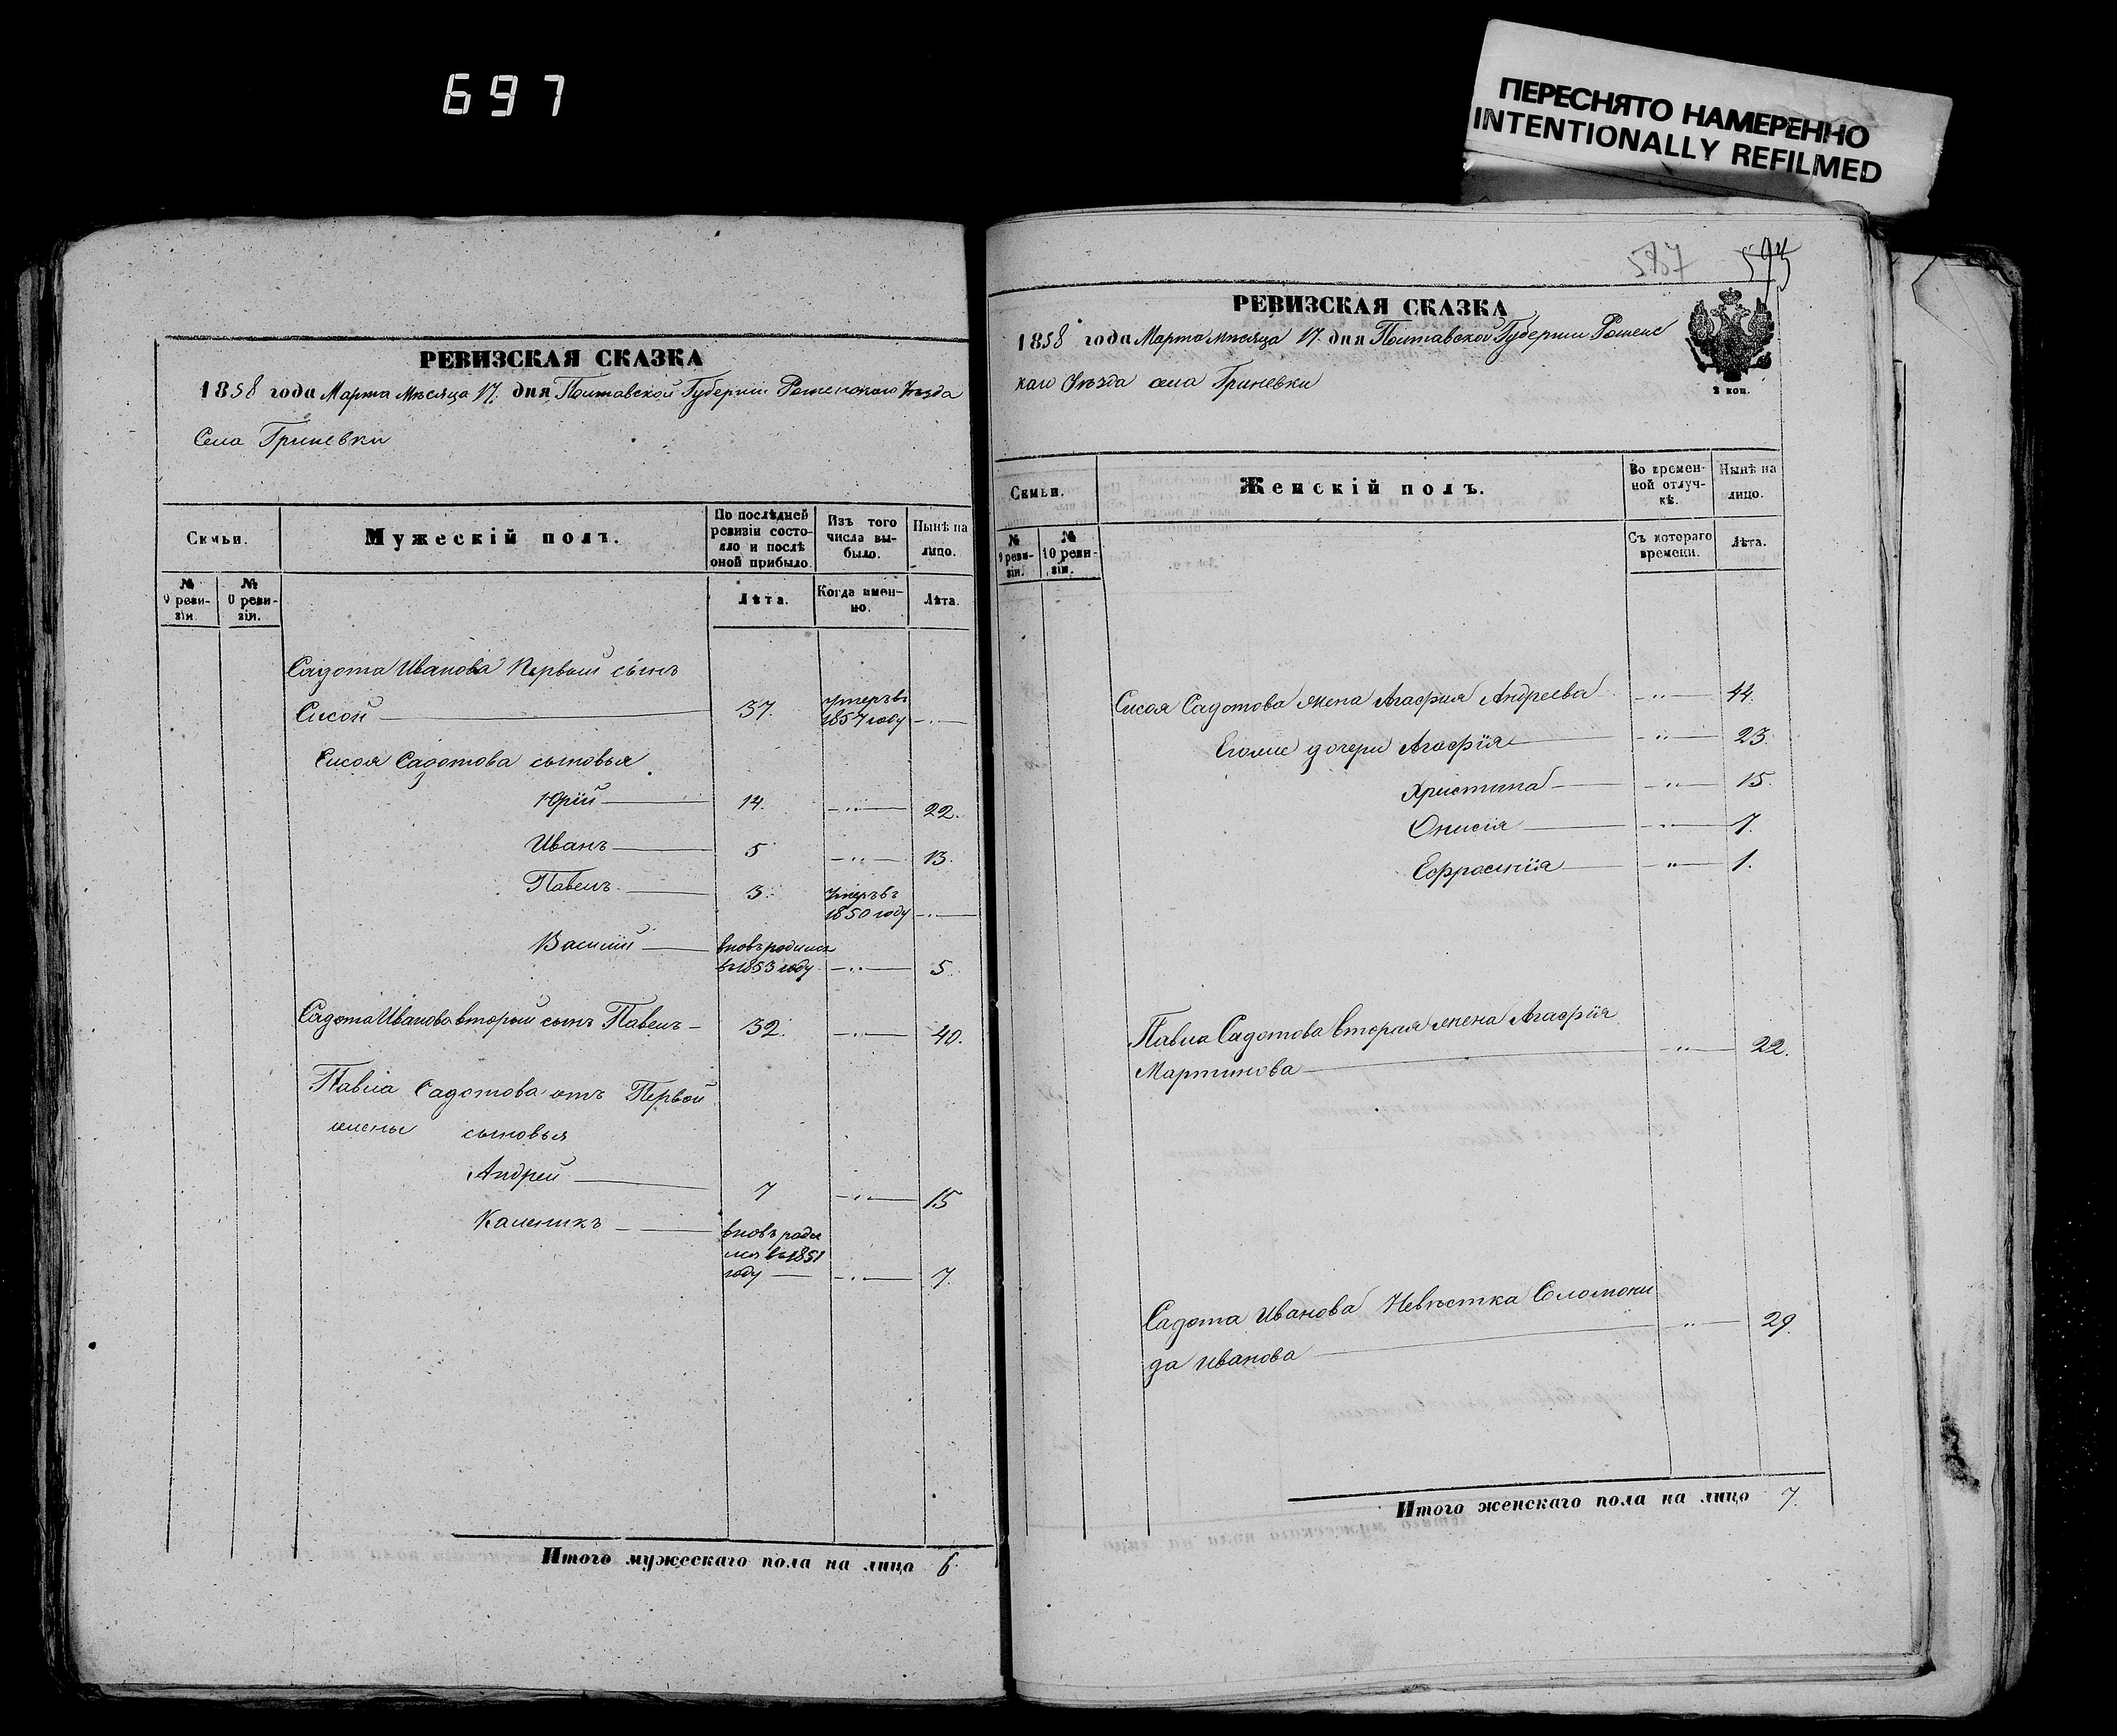 697
ПЕРЕСНЯТО НАМЕРЕННО
INTENTIONALLY REFILMED
РЕВИЗСКАЯ СКАЗКА
1858 года Марта Мѣсяца 17. дня Полтавской Губерніи Роменскаго Уѣзда
Села Гриневки
Семьи.
Мужескій полъ.
По послѣдней ревизіи состояло и послѣ оной прибыло.
Изъ того числа выбыло.
Нынѣ на лицо.
№ 9 ревизіи.
№ 0 ревизіи.
Лѣта.
Когда именно.
Лѣта.
Садота Иванова Первый сынъ
Сисой 37. Умеръ въ 1857 году
Сисоя Садотова сыновья
Юрій 14. 22.
Иванъ 5 13.
Павелъ 3. Умеръ въ 1850 году
Василій вновь родился въ 1853 году 5.
Садота Иванова вторый сынъ Павелъ 32. 40.
Павла Садотова отъ Первой
жены сыновья
Андрей 7 15
Каленикъ вновь родился въ 1851 году 7.
Итого мужескаго пола на лицо 6.
587 595
РЕВИЗСКАЯ СКАЗКА
1858 года Марта мѣсяца 17. дня Полтавской Губерніи Роменс
каго Уѣзда села Гриневки
3 коп.
Семьи.
Женскій полъ.
Во временной отлучкѣ.
Нынѣ на лицо.
№ 9 ревизіи.
№ 10 ревизіи.
Съ котораго времени.
Лѣта.
Сисоя Садотова жена Агафия Андреева 44.
Егоже дочери Агафія 23.
Христина 15.
Онисія 7.
Ефросинія 1.
Павла Садотова вторая жена Агафія
Мартинова 22.
Садота Иванова Невѣстка Соломони
да Иванова 29.
Итого женскаго пола на лицо 7.